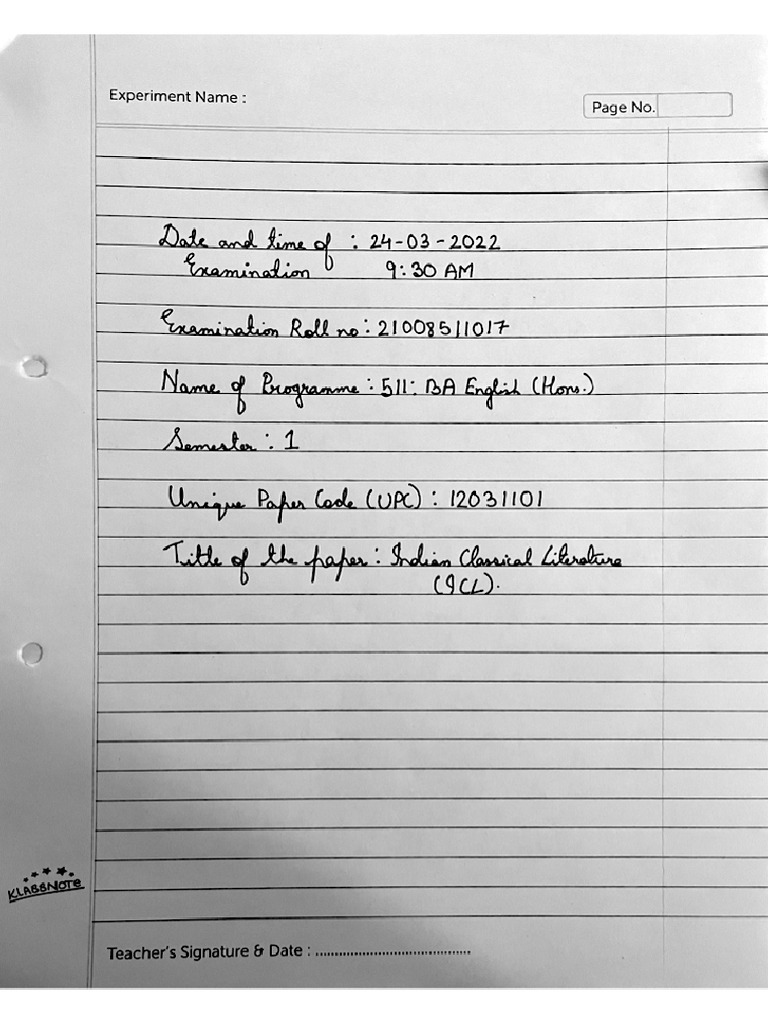 Experiment Name :
Page No.
Date and time of : 24-03-2022
Examination 9:30 AM
Examination Roll no : 21008511017
Name of Programme : 511: BA English (Hons.)
Semester : 1
Unique Paper Code (UPC) : 12031101
Title of the paper : Indian Classical Literature
(ICL).
KLASSNOTE
Teacher's Signature & Date : ..........................................